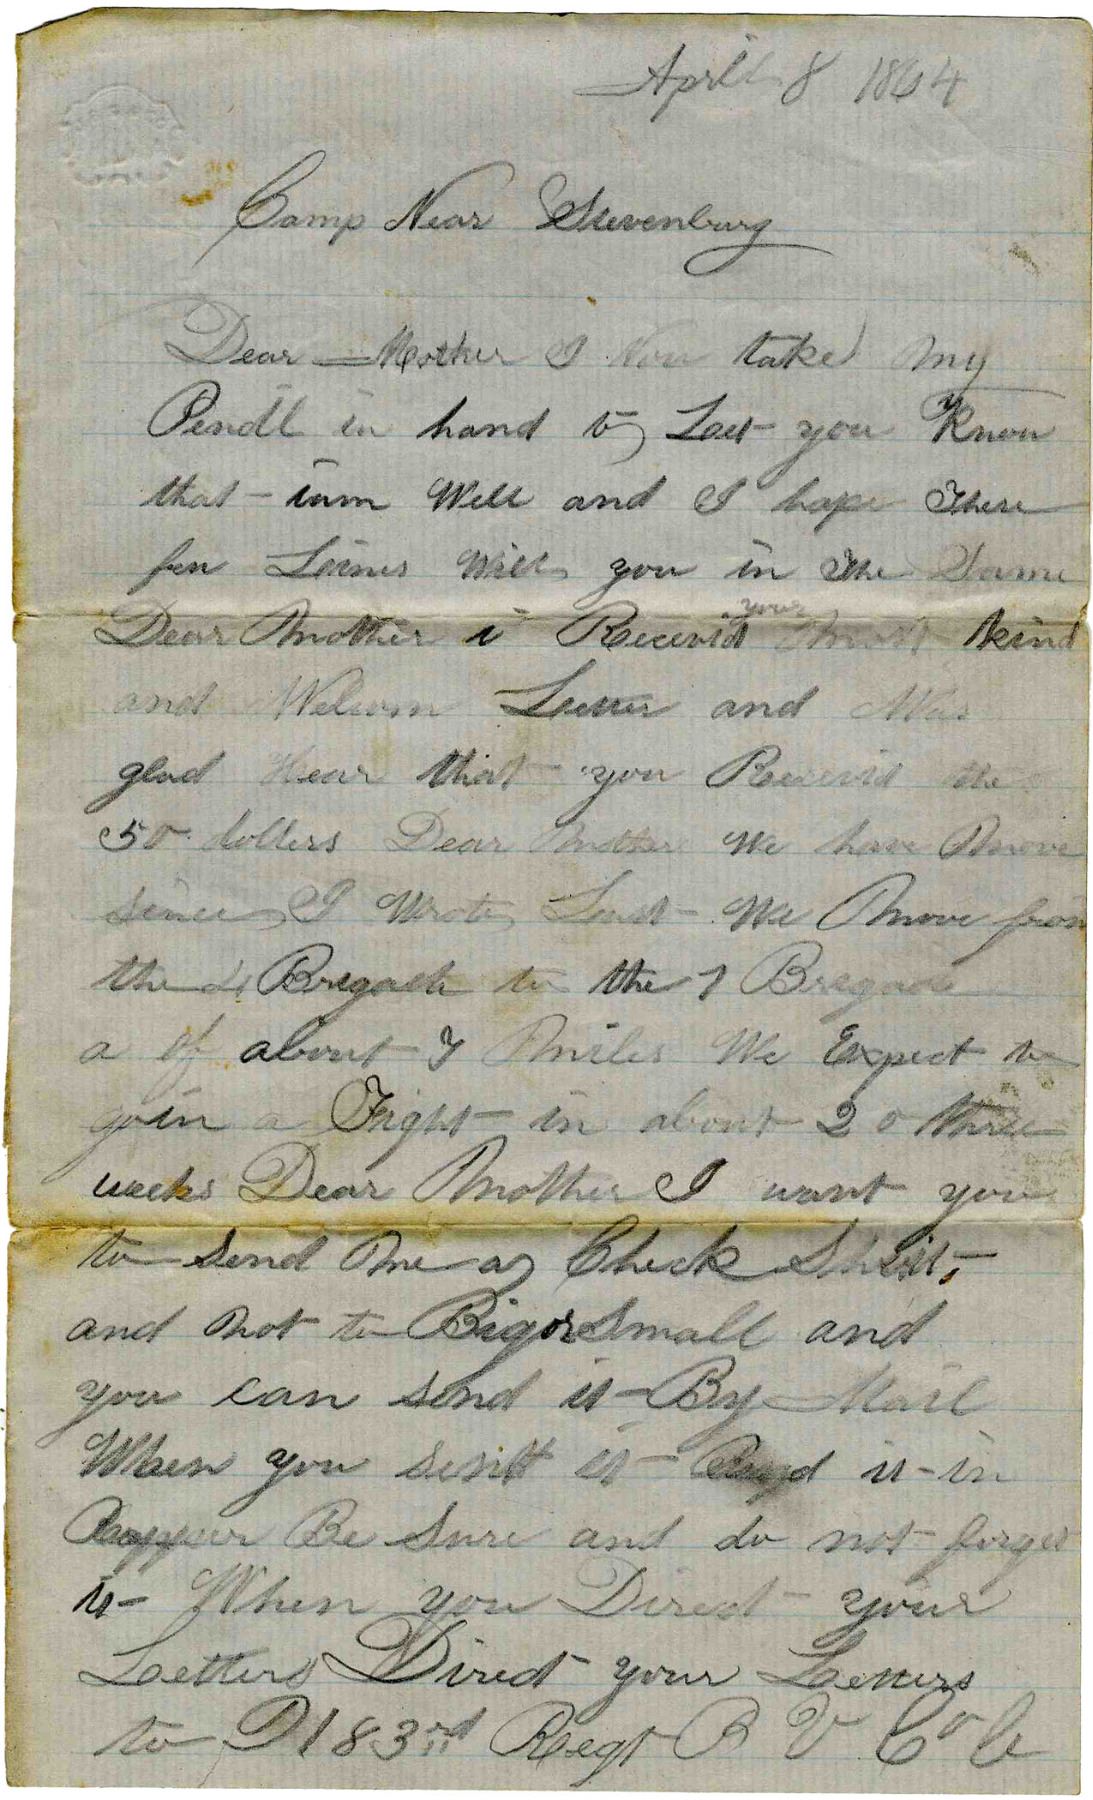 April 8 1864
Camp Near Stevenburg
Dear Mother I Now take My
Pendl in hand to Leet you Know
that iam Well and I hope These
few Leines Will you in the Same
Dear Mother i Receevid your Most kind
and Welcom Letter and Was
glad Hear that you Receevid the
50 dollers Dear Mother We have Move
since I Wrote Last We Move from
the Bregade to the 1 Bregade
a of about Miles We Expect to
goin a Fight in about 2 o three
weeks Dear Mother I want you
to Send Me a Check Shirt,
and not to Big or Small and
you can send it By Mail
When you sent it it in
Be Sure and do not forget
it When you Direct your
Letters Direct your Letters
to 183rd Regt P V Co C